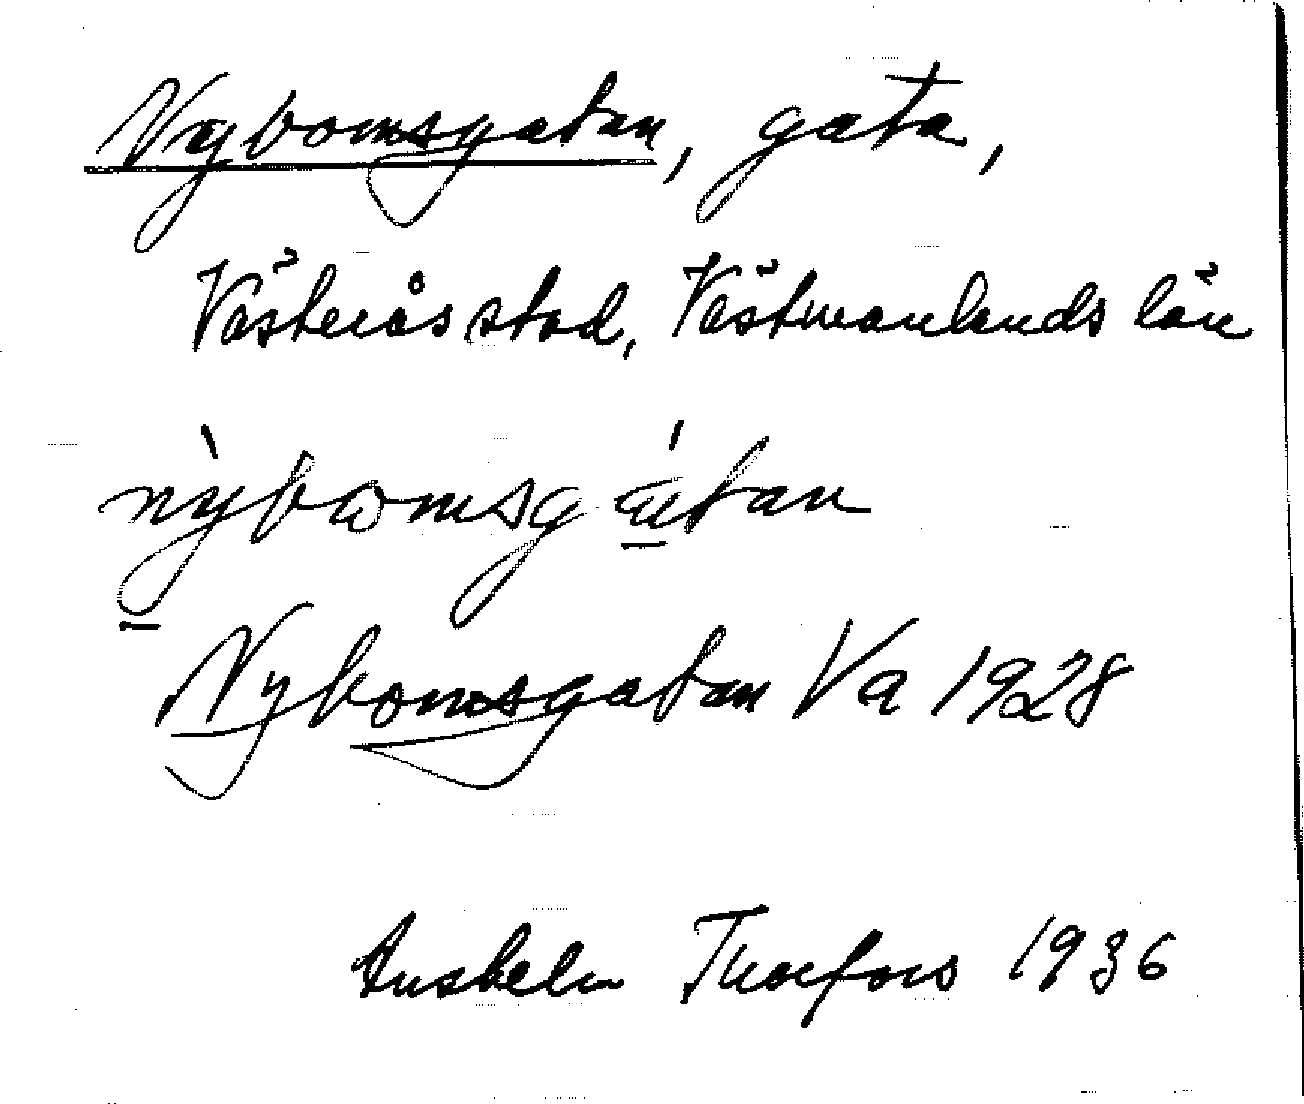 Nybomsgatan, gata,
Västerås stad, Västmanlands län
nỳbωmsgátan
Nybomsgatan Va 1928
Anshelm Thorfors 1936